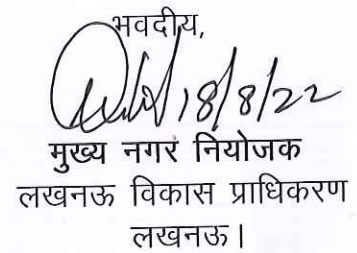 भवदीय,
18/8/22
मुख्य नगर नियोजक
लखनऊ विकास प्राधिकरण
लखनऊ।